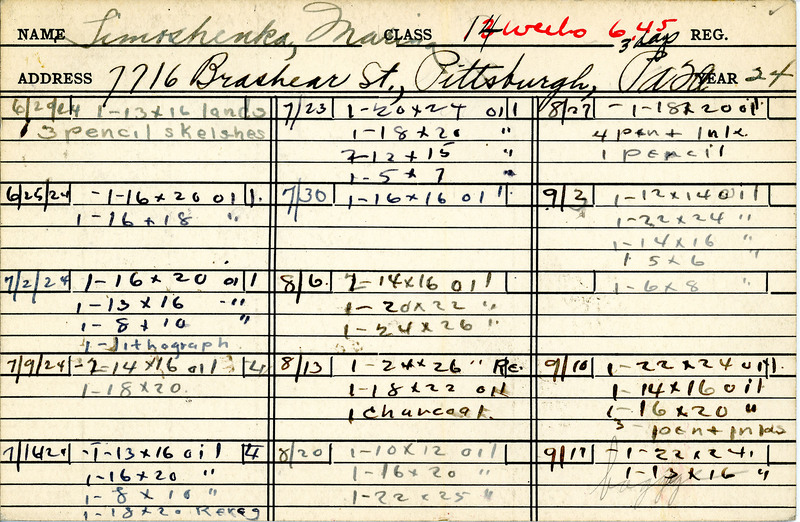 NAME Timoshenko, Marina CLASS 14 weeks 6.45 REG.
3 days
ADDRESS 7716 Brashear St., Pittsburgh, Pa. YEAR 24
6/29/24 1-13x16 lands
3 pencil sketches
6/25/24 -1-16x20 oil 1.
1-16x18 "
7/2/24 1-16x20 oil 1
1-13x16 -"
1-8x10 "
1-lithograph
7/9/24 -2-14x16 oil 4
1-18x20.
7/16/24 -1-13x16 oil 4
1-16x20 "
1-8x10 "
1-18x20 Rereg
7/23 1-20x24 oil 1
1-18x20 "
2-12x15 "
1-5x7 "
7/30 1-16x16 oil "
8/6. 2-14x16 oil
1-20x22 "
1-24x26 "
8/13 1-24x26 " Re.
1-18x22 oil
1 Charcoal.
8/20 1-10x12 oil
1-16x20 "
1-22x25 "
8/27 -1-18x20 oil
4 pen + Ink.
1 pencil
9/3 1-12x14 oil
1-22x24 "
1-14x16 "
1 5x6 "
1-6x8 "
9/10 1-22x24 oil 1.
1-14x16 oil
1-16x20 "
3-pen + inks
9/17 -1-22x24.
1-13x16 "